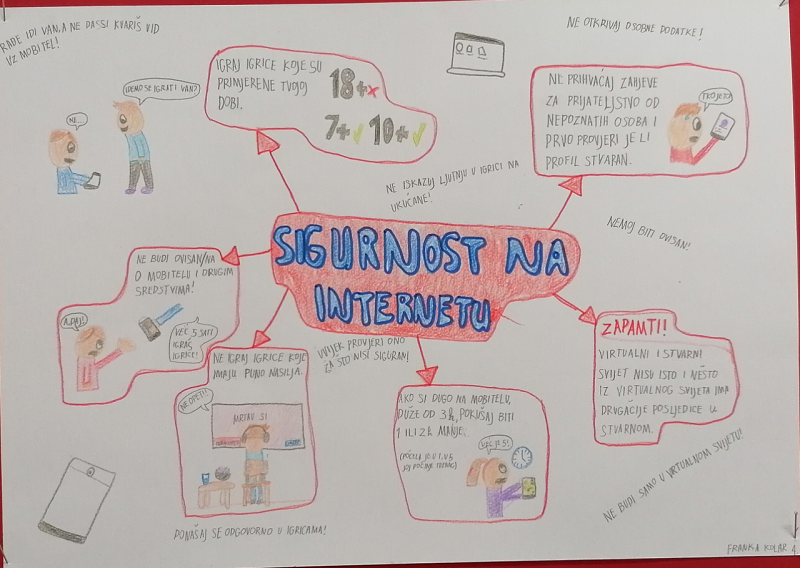 RAĐE IDI VAN, A NE DA SI KVARIŠ VID
UZ MOBITEL!
NE...
IDEMO SE IGRATI VAN?
IGRAJ IGRICE KOJE SU
PRIMJERENE TVOJOJ
DOBI.
18+
7+ 10+
NE OTKRIVAJ OSOBNE DODATKE!
NE PRIHVAĆAJ ZAHJEVE
ZA PRIJATELJSTVO OD
NEPOZNATIH OSOBA I
PRVO PROVJERI JE LI
PROFIL STVARAN.
TKO JE TO?
NE ISKAZUJ LJUTNJU U IGRICI NA
UKUĆANE!
NEMOJ BITI OVISAN!
SIGURNOST NA
INTERNETU
NE BUDI OVISAN/NA
O MOBITELU I DRUGIM
SREDSTVIMA!
AJDAJ!
VEĆ 5 SATI
IGRAŠ
IGRICE!
UVIJEK PROVJERI ONO
ZA ŠTO NISI SIGURAN!
ZAPAMTI!
VIRTUALNI I STVARNI
SVIJET NISU ISTO I NEŠTO
IZ VIRTUALNOG SVIJETA IMA
DRUGAČIJE POSLJEDICE U
STVARNOM.
NE IGRAJ IGRICE KOJE
IMAJU PUNO NASILJA.
NE OPET!!
MRTAV SI
AKO SI DUGO NA MOBITELU,
DUŽE OD 3h, POKUŠAJ BITI
1 ILI 2h MANJE.
(POČELA JE U 1, U 5
JOJ POČINJE TRENING)
VEĆ JE 5?!
NE BUDI SAMO U VIRTUALNOM SVIJETU!
PONAŠAJ SE ODGOVORNO U IGRICAMA!
FRANKA KOLAR 4.